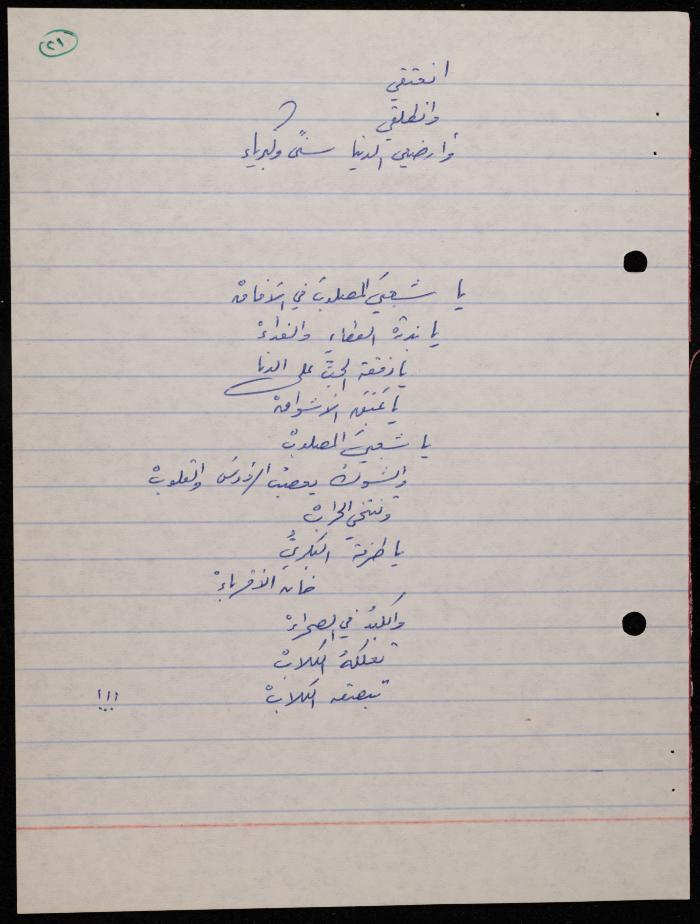 ٢١
انعتقي
وانطلقي
وأرضعي الدنيا سنًى وكبرياء
يا شعبيَ المصلوبَ في الآفاقْ
يا بذرة العطاءِ والفداءْ
يا دفقة الحبّ على الدنا
يا عَبَقَ الأشواقْ
يا شعبيَ المصلوبْ
والشوكُ يعصبُ الرؤوسَ والقلوبْ
وتنتخي الحرابْ
يا طرفة البكريُّ
خانه الأقرباءْ
والكبدُ في الصحراءْ
تعلكهُ الكلابْ
تبصقه الكلابْ !!!